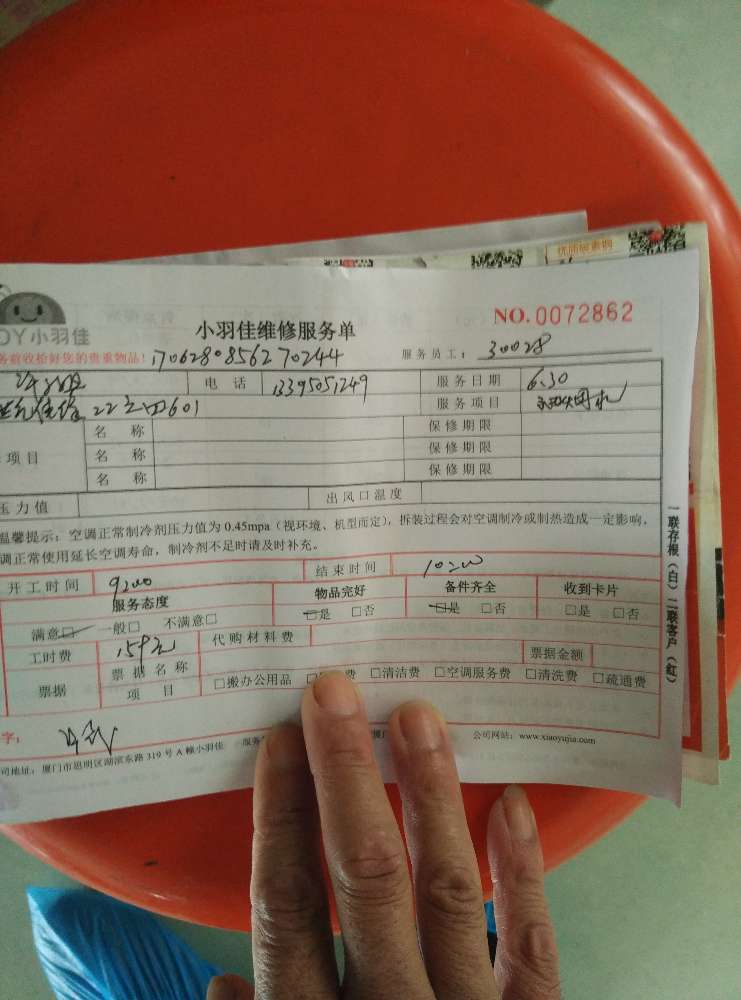 优质服务
小羽佳
小羽佳维修服务单
NO.0072862
务前收拾好您的贵重物品!
1706280856270244
服务员工: 30028
电 话 13395051249 服务日期 6.30
22 601 服务项目
名 称 保修期限
项目 名 称 保修期限
名 称 保修期限
压力值 出风口温度
温馨提示:空调正常制冷剂压力值为 0.45mpa(视环境、机型而定),拆装过程会对空调制冷或制热造成一定影响,
调正常使用延长空调寿命,制冷剂不足时请及时补充。
开工时间 9:00 结束时间 10:00
服务态度 物品完好 备件齐全 收到卡片
满意□ 一般□ 不满意□ □是 □否 □是 □否 □是 □否
工时费 159元 代购材料费
票据 票据名称 票据金额
项 目 □搬办公用品 费 □清洁费 □空调服务费 □清洗费 □疏通费
字:
司地址:厦门市思明区湖滨东路 319 号 A 幢小羽佳
公司网站:www.xiaoyujia.com
一联存根(白)二联客户(红)